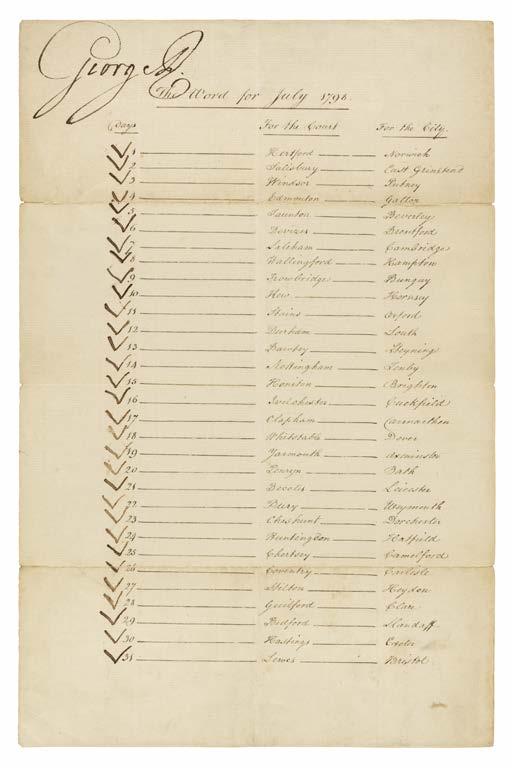 George R.
The Word for July 1796.
Days For the Court For the City.
1 Hertford Norwich
2 Salisbury East Grinstead
3 Windsor Putney
4 Edmonton Gatton
5 Taunton Beverley
6 Devizes Brentford
7 Laleham Cambridge
8 Wallingford Hampton
9 Trowbridge Bungay
10 Kew Hornsey
11 Stains Oxford
12 Durham South
13 Bawtry Steyning
14 Nottingham Tenby
15 Honiton Brighton
16 Ivelchester Cuckfield
17 Clapham Carmarthen
18 Whitstable Dover
19 Yarmouth Axminster
20 Penryn Bath
21 Beccles Leicester
22 Bury Weymouth
23 Cheshunt Dorchester
24 Huntingdon Hatfield
25 Chertsey Camelford
26 Coventry Carlisle
27 Stilton Heydon
28 Guilford Clare
29 Bedford Llandaff
30 Hastings Exeter
31 Lewes Bristol